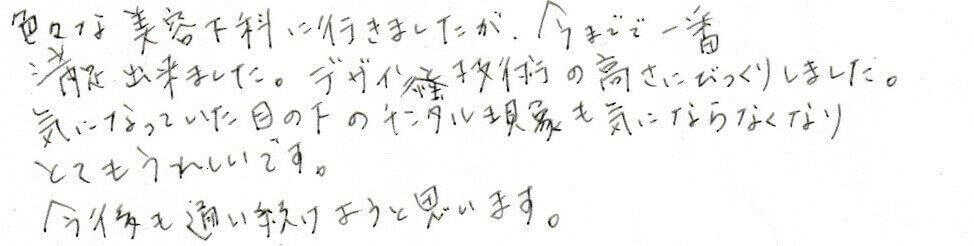 色々な美容下科に行きましたが、今までで一番
満足出来ました。デザイ 技術の高さにびっくりしました。
気になっていた目の下のチンダル現象も気にならなくなり
とてもうれしいです。
今後も通い続けようと思います。